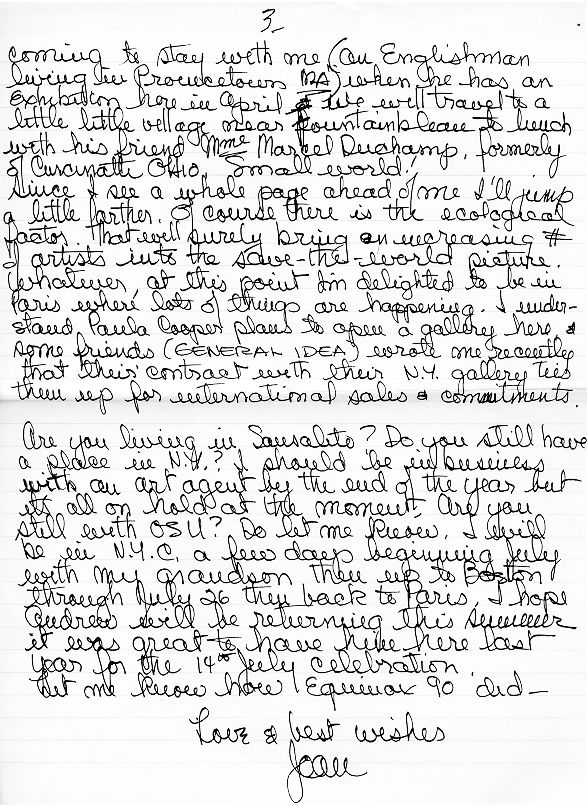 3.
coming to stay with me (an Englishman
living in Provincetown MA) when he has an
exhibition here in April & we will travel to a
little little village near Fountainbleau to lunch
with his friend Mme Marcel Duchamp, formerly
of Cincinatti OHIO. Small world!
Since I see a whole page ahead of me I'll jump
a little farther. Of course there is the ecological
factor. That will surely bring an increasing #
of artists into the save-the-world picture.
Whatever, at this point I'm delighted to be in
Paris where lots of things are happening. I under-
stand Paula Cooper plans to open a gallery here &
some friends (GENERAL IDEA) wrote me recently
that their contract with their N.Y. gallery ties
them up for international sales & commitments.
Are you living in Sausalito? Do you still have
a place in N.Y.? I should be in business
with an art agent by the end of the year but
it's all on hold at the moment. Are you
still with OSU? Do let me know. I will
be in N.Y.C. a few days beginning July
with my grandson then up to Boston
through July 26 then back to Paris. I hope
Andrew will be returning this summer
it was great to have him here last
year for the 14th July celebration
Let me know how Equinox 90 did—
Love & best wishes
Joan